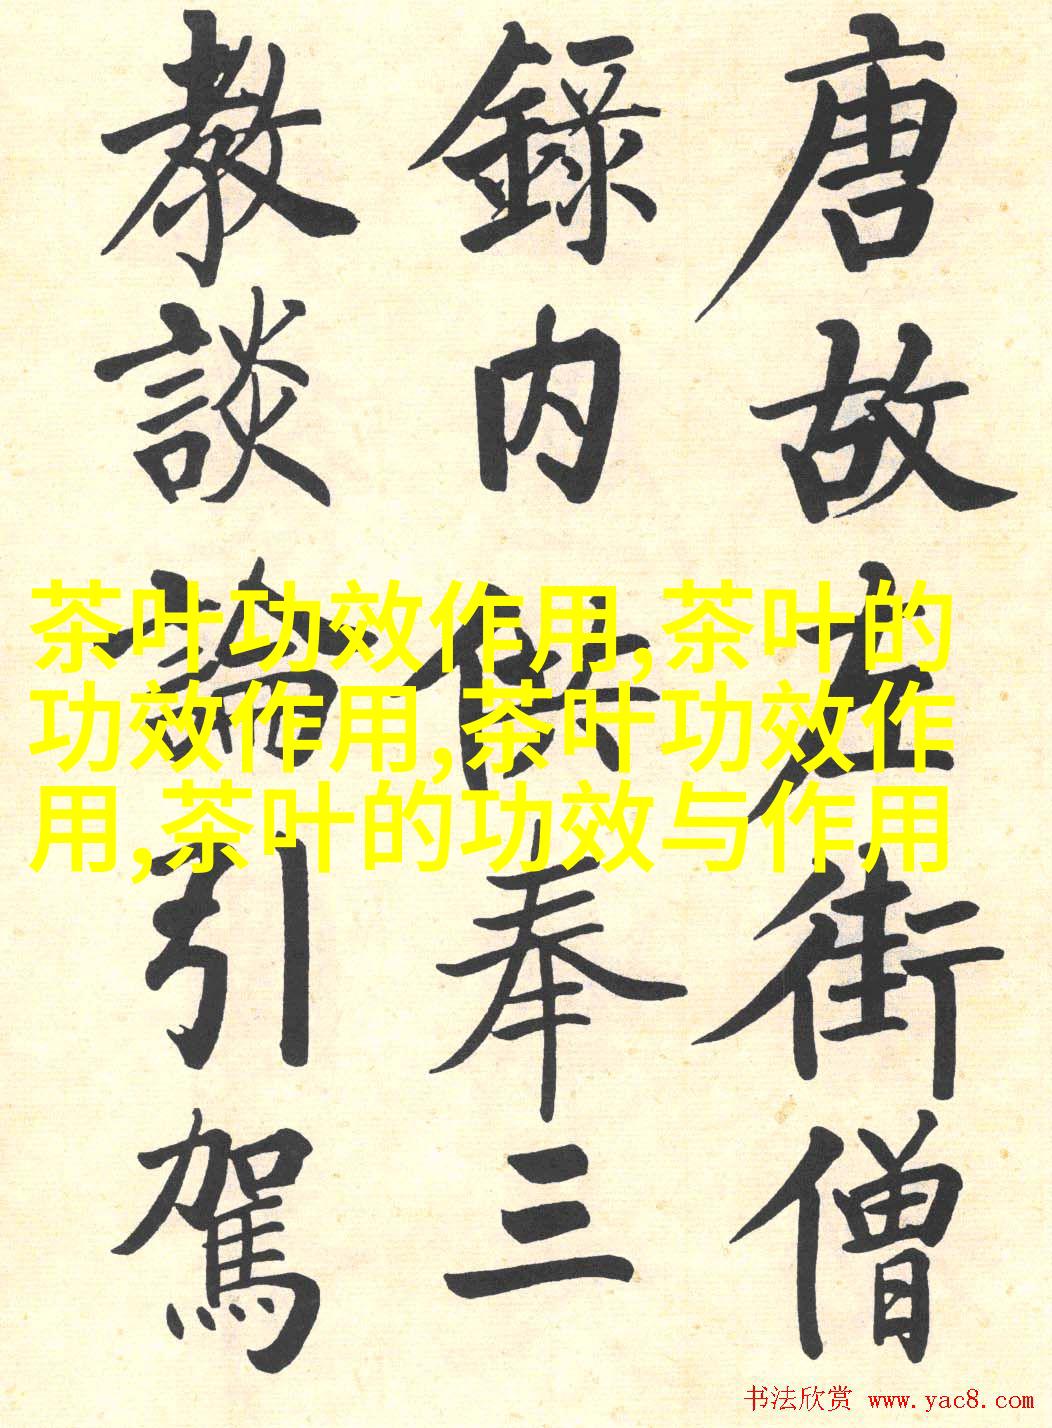 唐故左街僧
錄内供奉三
教談論引駕
茶叶功效作用,茶叶的
功效作用,茶叶功效作
用,茶叶的功效与作用
书法欣赏 www.yac8.com